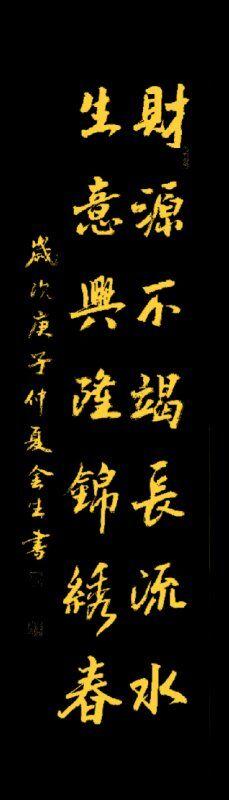 財源不竭長流水
生意興隆錦綉春
歲次庚子仲夏金生書